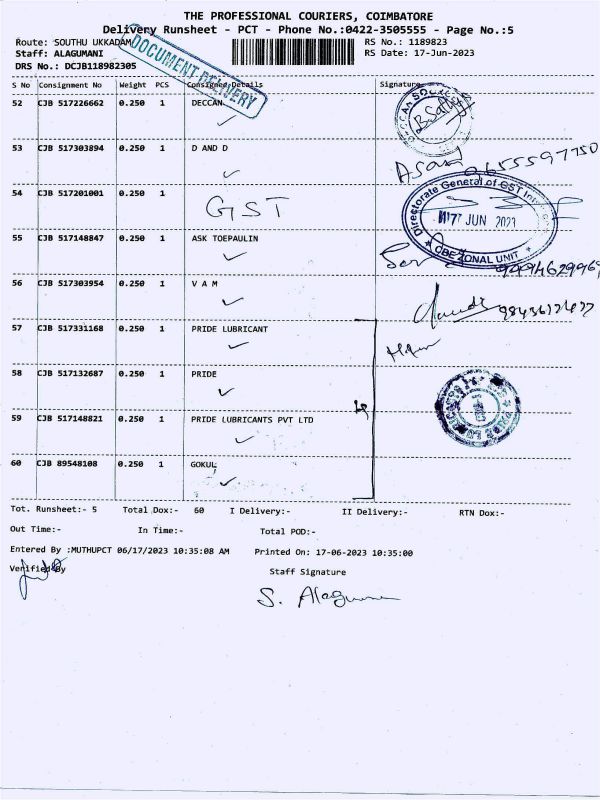 THE PROFESSIONAL COURIERS, COIMBATORE
Delivery Runsheet - PCT - Phone No.:0422-3505555 - Page No.:5
Route: SOUTHU UKKADAM RS No.: 1189823
Staff: ALAGUMANI RS Date: 17-Jun-2023
DRS No.: DCJB118982305
DOCUMENT DELIVERY
S No Consignment No Weight PCS Consignee Details Signature
52 CJB 517226662 0.250 1 DECCAN
53 CJB 517303894 0.250 1 D AND D
54 CJB 517201001 0.250 1 GST
Directorate General of GST
17 JUN
ZONAL UNIT
55 CJB 517148847 0.250 1 ASK TOEPAULIN
56 CJB 517303954 0.250 1 V A M
57 CJB 517331168 0.250 1 PRIDE LUBRICANT
58 CJB 517132687 0.250 1 PRIDE
59 CJB 517148821 0.250 1 PRIDE LUBRICANTS PVT LTD
60 CJB 89548108 0.250 1 GOKUL
Tot. Runsheet:- 5 Total Dox:- 60 I Delivery:- II Delivery:- RTN Dox:-
Out Time:- In Time:- Total POD:-
Entered By :MUTHUPCT 06/17/2023 10:35:08 AM Printed On: 17-06-2023 10:35:00
Verified By Staff Signature